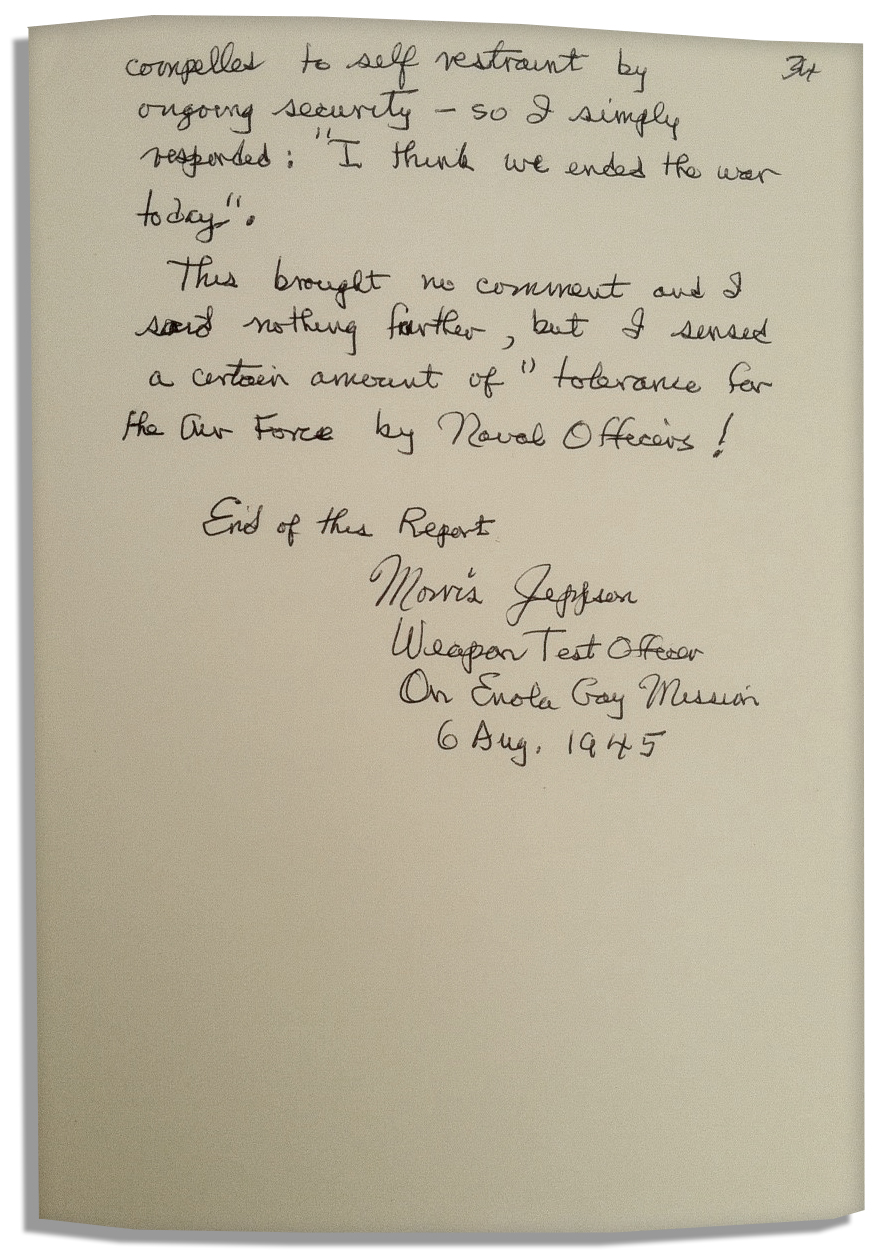 compelled to self restraint by 34
ongoing security – so I simply
responded : "I think we ended the war
today".
This brought no comment and I
said nothing further, but I sensed
a certain amount of " tolerance for
the Air Force by Naval Officers !
End of this Report
Morris Jeppson
Weapon Test Officer
On Enola Gay Mission
6 Aug. 1945